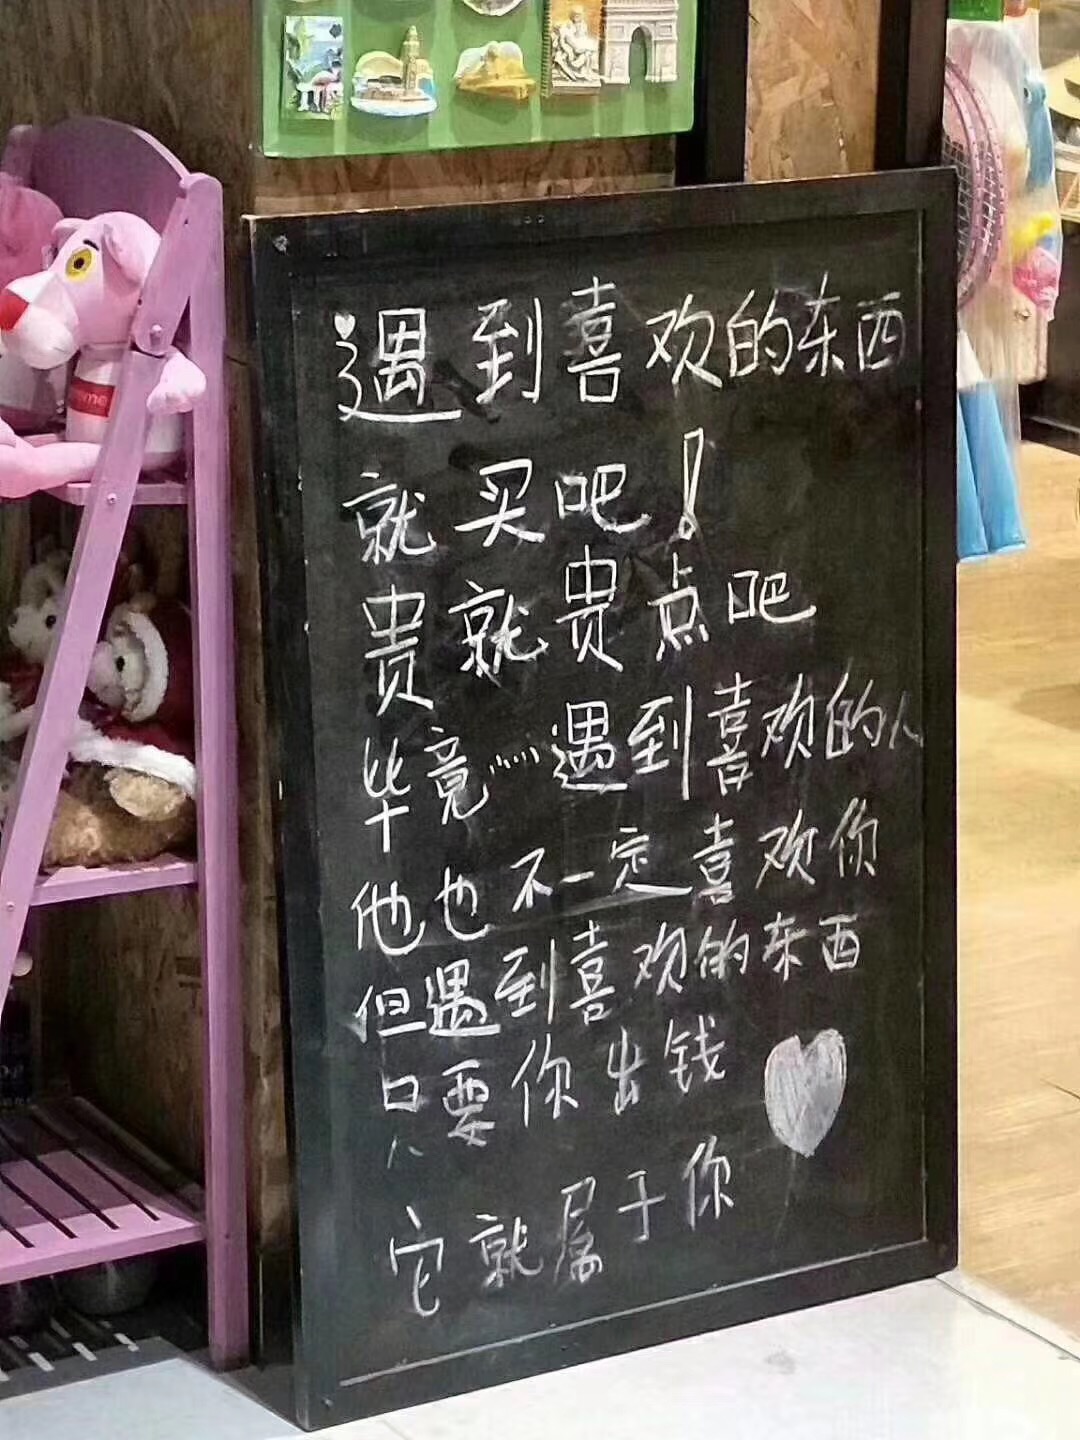 遇到喜欢的东西
就买吧！
贵就贵点吧
毕竟……遇到喜欢的人
他也不一定喜欢你
但遇到喜欢的东西
只要你出钱
它就属于你